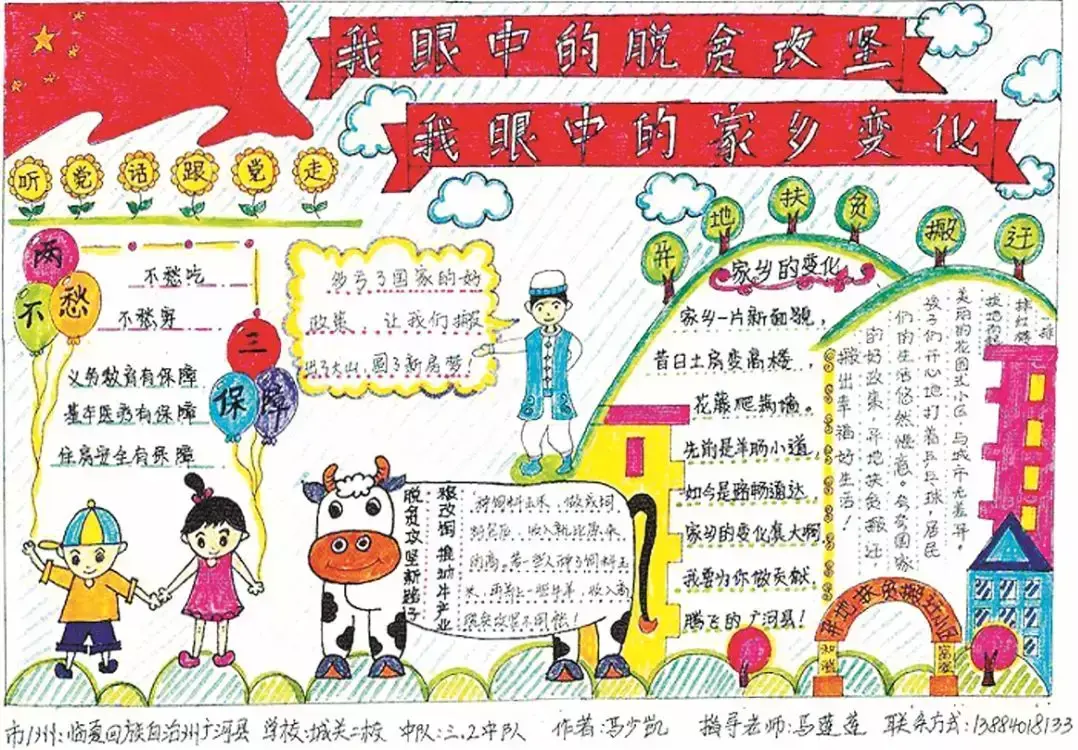 我眼中的脱贫攻坚
我眼中的家乡变化
听党话跟党走
两不愁
不愁吃
不愁穿
三保障
义务教育有保障
基本医疗有保障
住房安全有保障
多亏了国家的好
政策 让我们搬
出了大山,圆了新房梦。
异地扶贫搬迁
家乡的变化
家乡一片新面貌,
昔日土房变高楼,
花藤爬满墙。
先前是羊肠小道,
如今是路畅通达,
家乡的变化真大啊
我要为你做贡献。
腾飞的广河县!
一排排红楼
拔地而起
美丽的花园式小区,与城市无差异。
孩子们开心地打着乒乓球,居民
们的生活悠然惬意。多亏国家
的好政策 异地扶贫搬迁,
搬出幸福好生活!
粮改饲 推动牛产业
脱贫攻坚新路子
种饲料玉米,做成饲
料包后,收入就比原来
的高。若一些人种了饲料玉
米,再养上一些牛羊,收入高
脱贫攻坚不用愁!
异地扶贫搬迁小区
和谐
富强
市、州:临夏回族自治州广河县 学校:城关二校 中队:三.2中队 作者:马少凯 指导老师:马莲莲 联系方式:13884018133